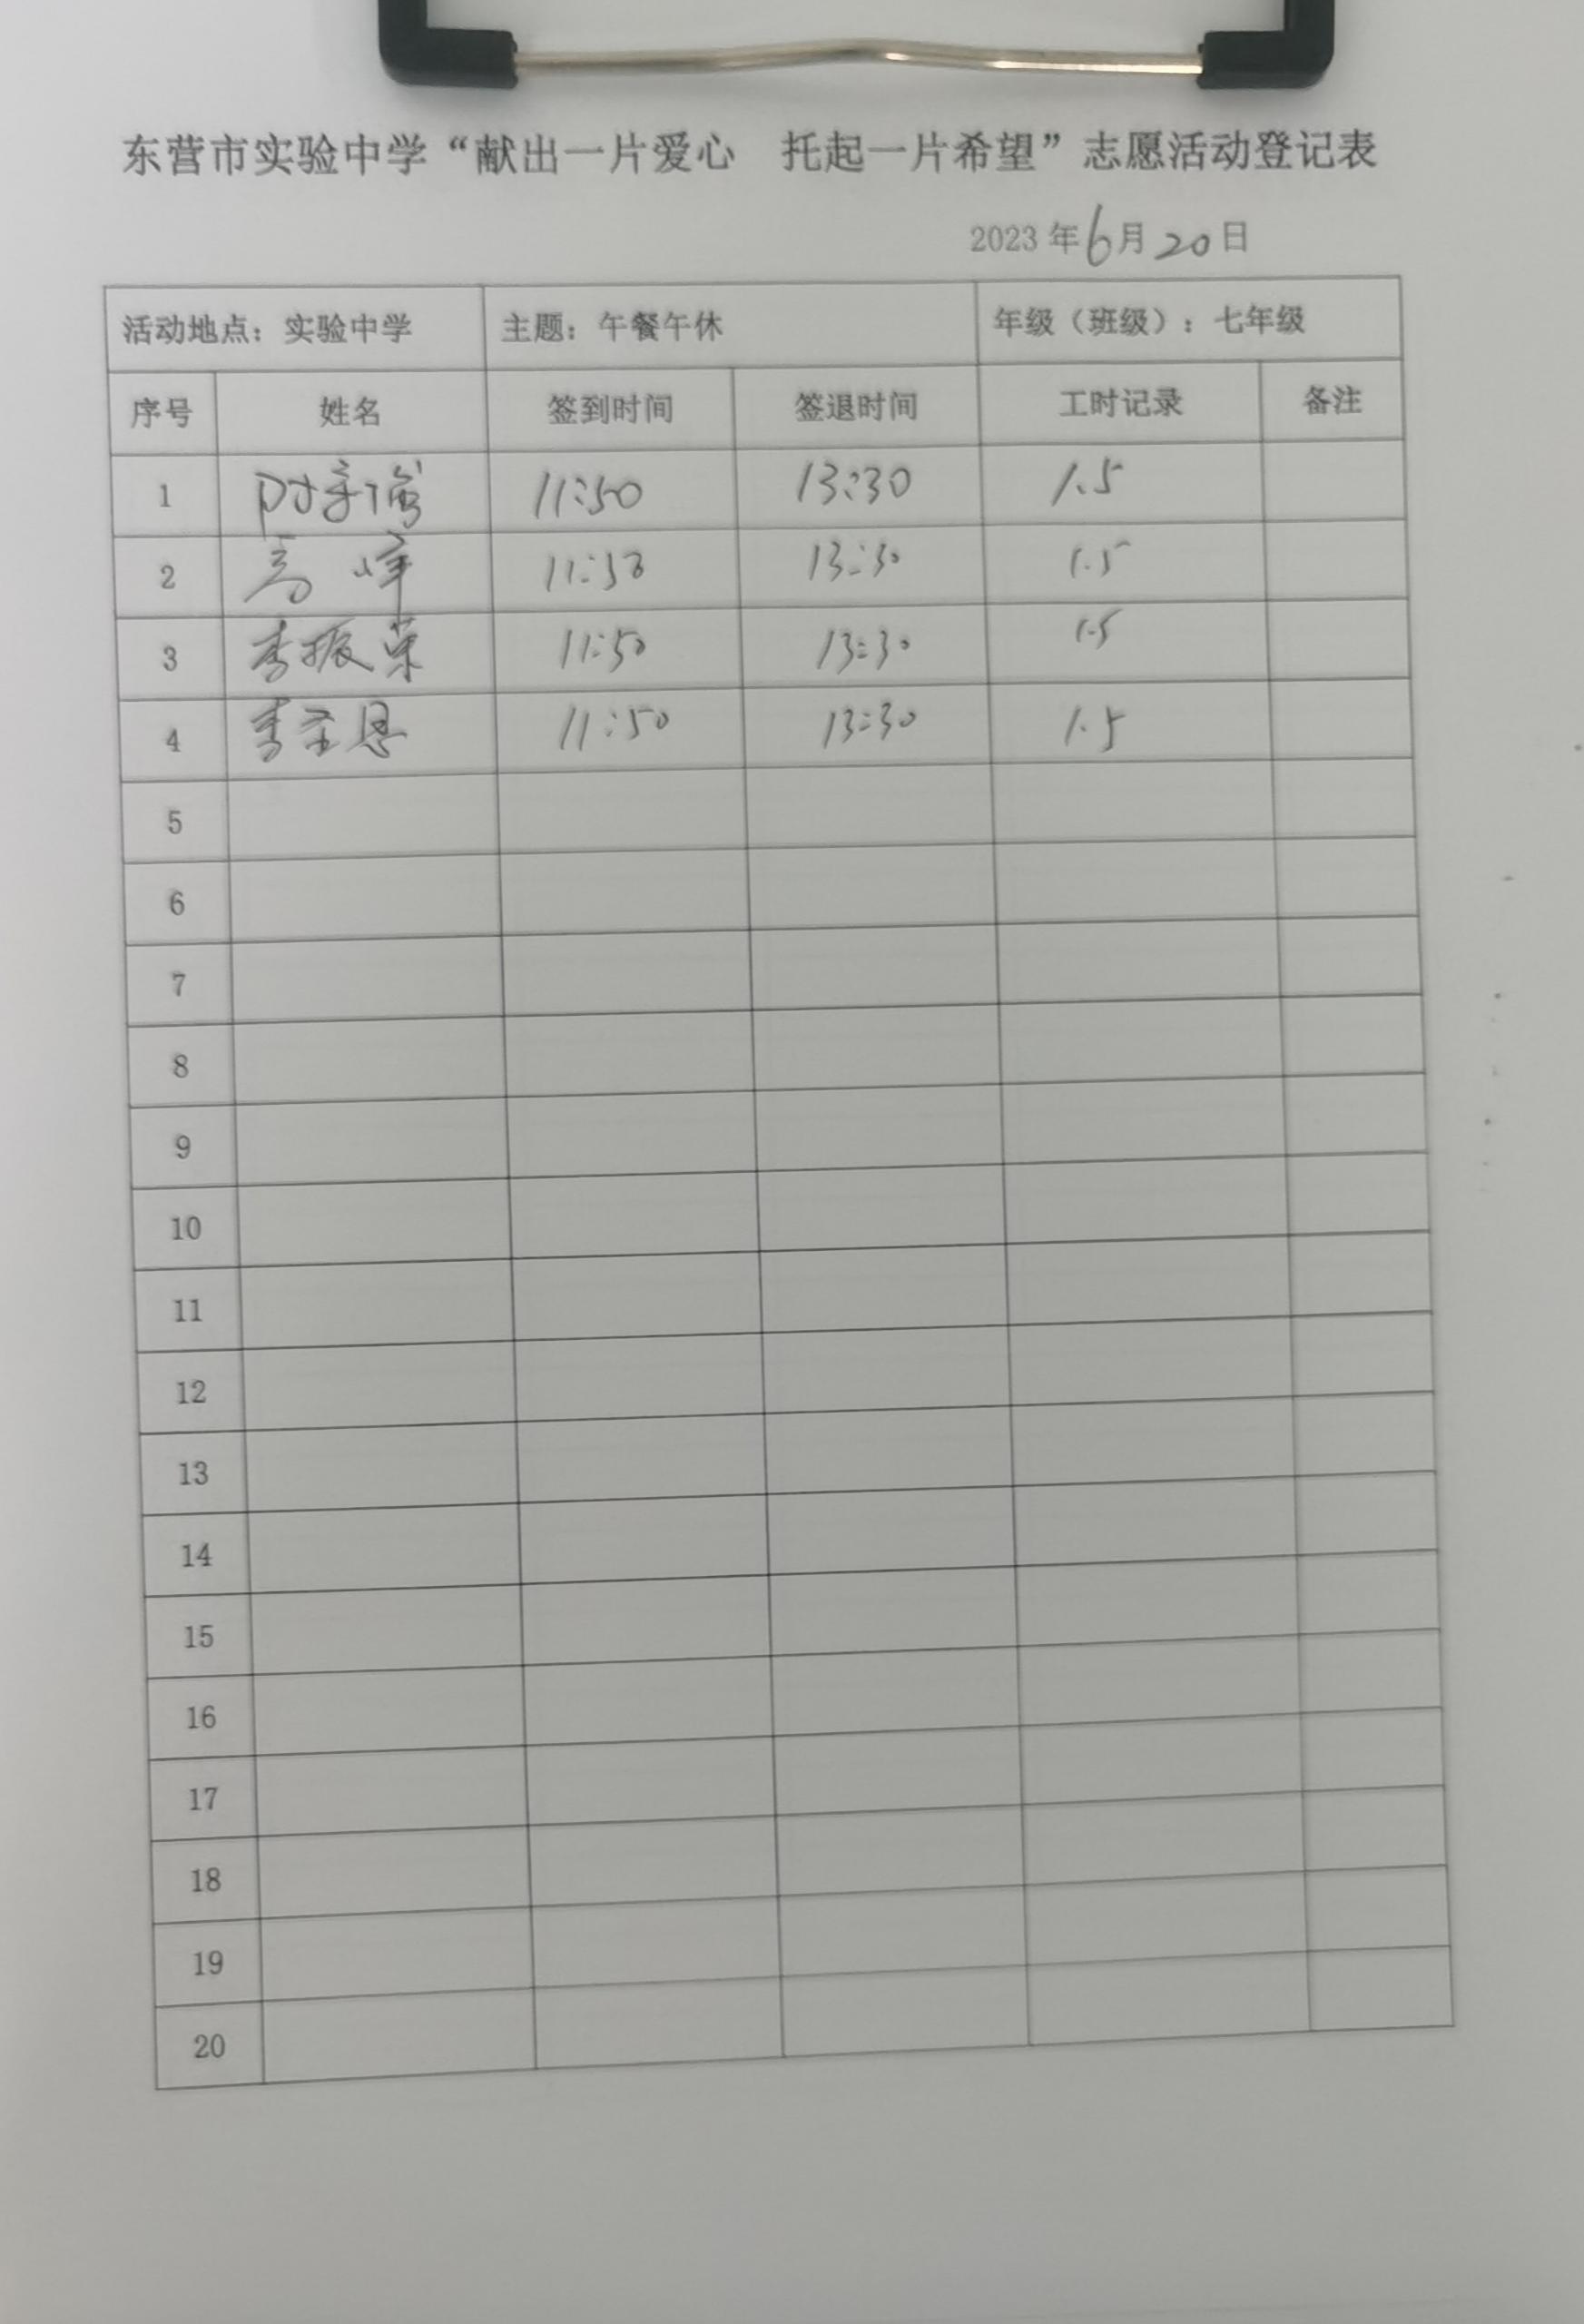 东营市实验中学“献出一片爱心 托起一片希望”志愿活动登记表
2023 年 6 月 20 日
活动地点：实验中学 主题：午餐午休 年级（班级）：七年级
序号 姓名 签到时间 签退时间 工时记录 备注
1 11:50 13:30 1.5
2 高峰 11:50 13:30 1.5
3 李振荣 11:50 13:30 1.5
4 李圣恩 11:50 13:30 1.5
5
6
7
8
9
10
11
12
13
14
15
16
17
18
19
20